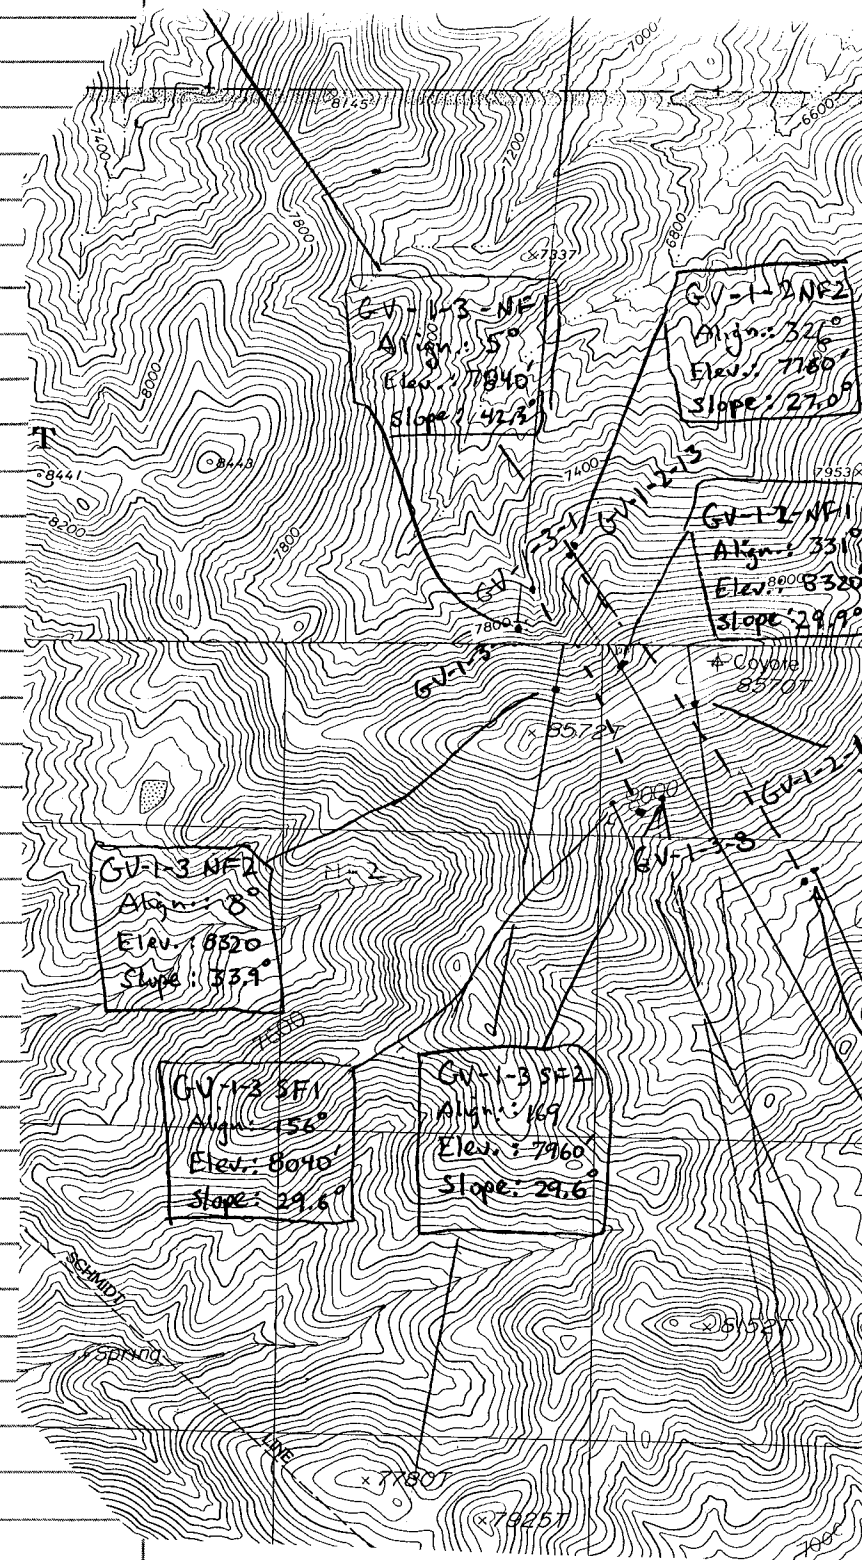 7000
8145
6600
7400
7200
7800
6800
×7337
GV-1-3-NF1
Align.: 5°
Elev.: 7840'
Slope: 42.3°
GV-1-2NF2
Align.: 326°
Elev.: 7760'
Slope: 27.0°
8000
T
8441
8443
7400
GV-1-2-13
7953×
8200
7800
GV-1-3-1
GV-1-2-NF1
Align.: 331°
Elev.: 8320'
8000
Slope: 29.9°
7800
GV-1-3
Coyote
8570T
×8572T
8000
GV-1-2-1
GV-1-3-8
GV-1-3 NF2
Align.: 8°
Elev.: 8320
Slope: 33.9°
7600
GV-1-3 SF1
Align: 156°
Elev.: 8040'
Slope: 29.6°
GV-1-3 SF2
Align.: 169
Elev.: 7960'
Slope: 29.6°
SCHMIDT
LINE
Spring
×8152T
×7780T
×7825T
7000